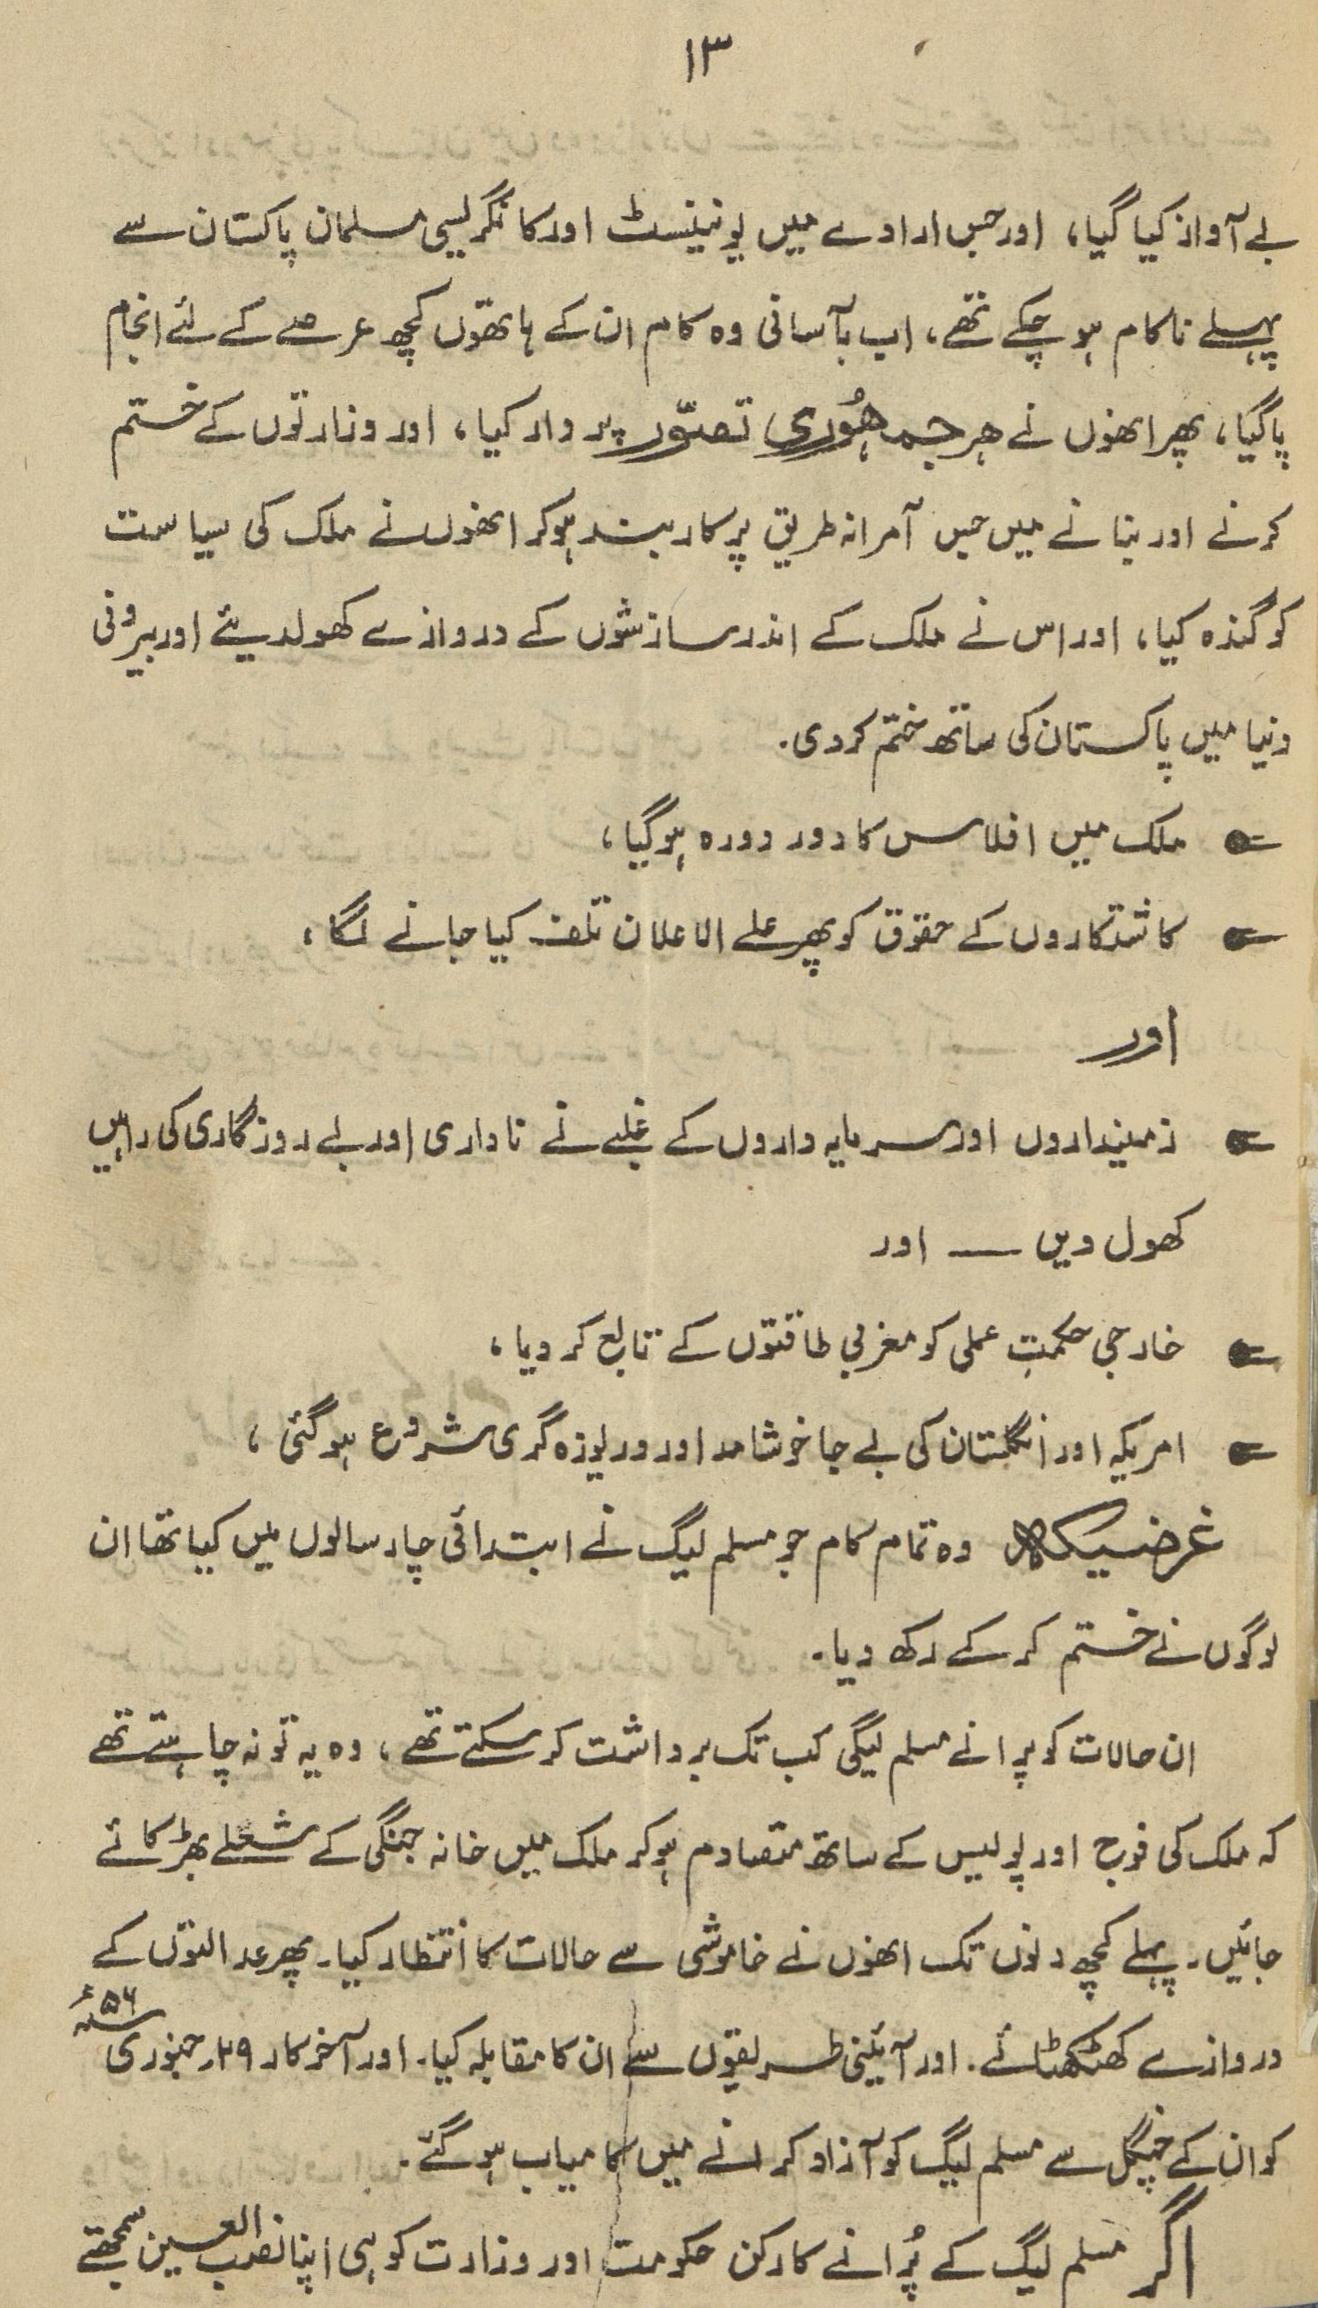 ۱۳
بے آواز کیا گیا، اور جس ارادے میں یونینسٹ اور کانگریسی مسلمان پاکستان سے
پہلے ناکام ہو چکے تھے، اب بآسانی وہ کام ان کے ہاتھوں کچھ عرصے کے لئے انجام
پا گیا، پھر انھوں نے ہر جمہوری تصوّر پر وار کیا، اور وزارتوں کے ختم
کرنے اور بنانے میں جس آمرانہ طریق پر کاربند ہو کر انھوں نے ملک کی سیاست
کو گندہ کیا، اور اس نے ملک کے اندر سازشوں کے دروازے کھولدیئے اور بیرونی
دنیا میں پاکستان کی ساتھ ختم کردی۔
ملک میں افلاس کا دور دورہ ہو گیا،
کاشتکاروں کے حقوق کو پھر علے الاعلان تلف کیا جانے لگا،
اور
زمینداروں اور سرمایہ داروں کے غلبے نے ناداری اور بے روزگاری کی راہیں
کھول دیں — اور
خارجی حکمتِ عملی کو مغربی طاقتوں کے تابع کر دیا،
امریکہ اور انگلستان کی بے جا خوشامد اور دریوزہ گری شروع ہو گئی،
غرضیکہ وہ تمام کام جو مسلم لیگ نے ابتدائی چار سالوں میں کیا تھا ان
لوگوں نے ختم کر کے رکھ دیا۔
ان حالات کو پرانے مسلم لیگی کب تک برداشت کر سکتے تھے، وہ یہ تو نہ چاہتے تھے
کہ ملک کی فوج اور پولیس کے ساتھ متصادم ہو کر ملک میں خانہ جنگی کے شعلے بھڑکائے
جائیں۔ پہلے کچھ دنوں تک انھوں نے خاموشی سے حالات کا انتظار کیا۔ پھر عدالتوں کے
دروازے کھٹکھٹائے۔ اور آئینی طریقوں سے ان کا مقابلہ کیا۔ اور آخر کار ۲۹ر جنوری ۵۶ء
کو ان کے چنگل سے مسلم لیگ کو آزاد کرانے میں کامیاب ہو گئے۔
اگر مسلم لیگ کے پُرانے کارکن حکومت اور وزارت کو ہی اپنا نصب العین سمجھتے